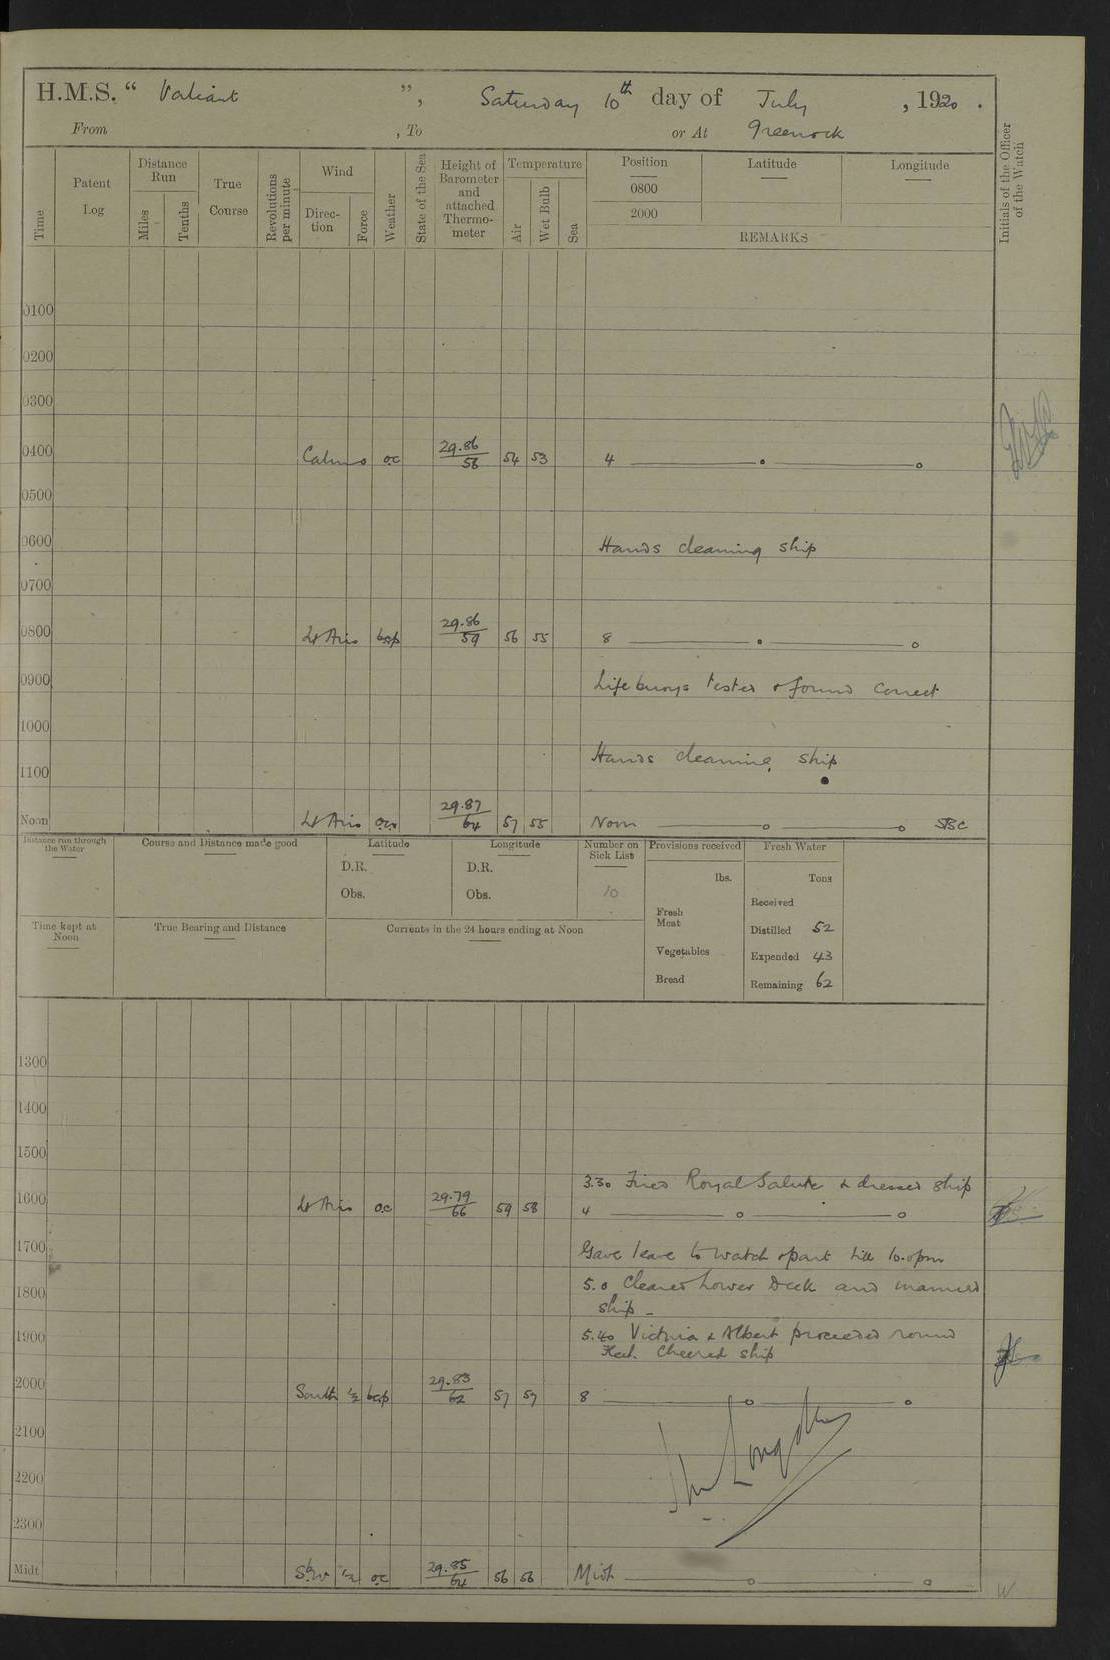 H.M.S. “ Valiant ”, Saturday 10th day of July , 1920 .
From , To or At Greenock
Time
Patent Log
Distance Run
Miles
Tenths
True Course
Revolutions per minute
Wind
Direc-tion
Force
Weather
State of the Sea
Height of Barometer and attached Thermo-meter
Temperature
Air
Wet Bulb
Sea
Position
0800
2000
Latitude
Longitude
REMARKS
Initials of the Officer of the Watch
0100
0200
0300
0400 Calms o.c 29.86 58 54 53 4
0500
0600 Hands cleaning ship
0700
0800 Lt Airs bcp 29.86 59 56 55 8
0900 Lifebuoys tested & found correct
1000
Hands cleaning ship
1100
Noon Lt Airs 29.87 64 57 55 Noon
Distance run through the Water
Course and Distance made good
Latitude
D.R.
Obs.
Longitude
D.R.
Obs.
Number on Sick List
10
Provisions received
lbs.
Fresh Meat
Vegetables
Bread
Fresh Water
Tons
Received
Distilled 52
Expended 43
Remaining 62
Time kept at Noon
True Bearing and Distance
Currents in the 24 hours ending at Noon
1300
1400
1500
3.30 Fired Royal Salute & dressed ship
1600 Lt Airs o.c 29.79 66 59 58 4
1700 Gave leave to watch & part till 10.0pm
1800 5.0 Cleared Lower Deck and manned
ship –
1900 5.40 Victoria & Albert proceeded round
Fleet. Cheered ship
2000 South ½ bcp 29.83 62 57 57 8
2100
2200
2300
Midt SbW ½ o.c 29.85 64 56 56 Midt